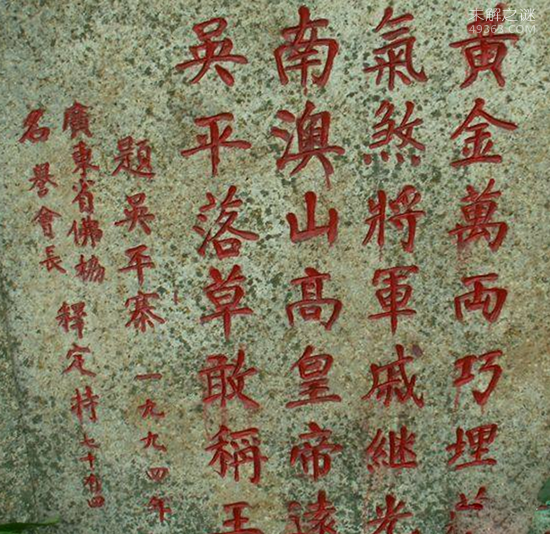 未解之谜
49363.COM
黄金萬両巧埋
氣煞將軍戚繼光
南澳山高皇帝遠
吳平落草敢稱王
題吳平寨 一九九四年
廣東省佛協 釋定持 七十有四
名譽會長